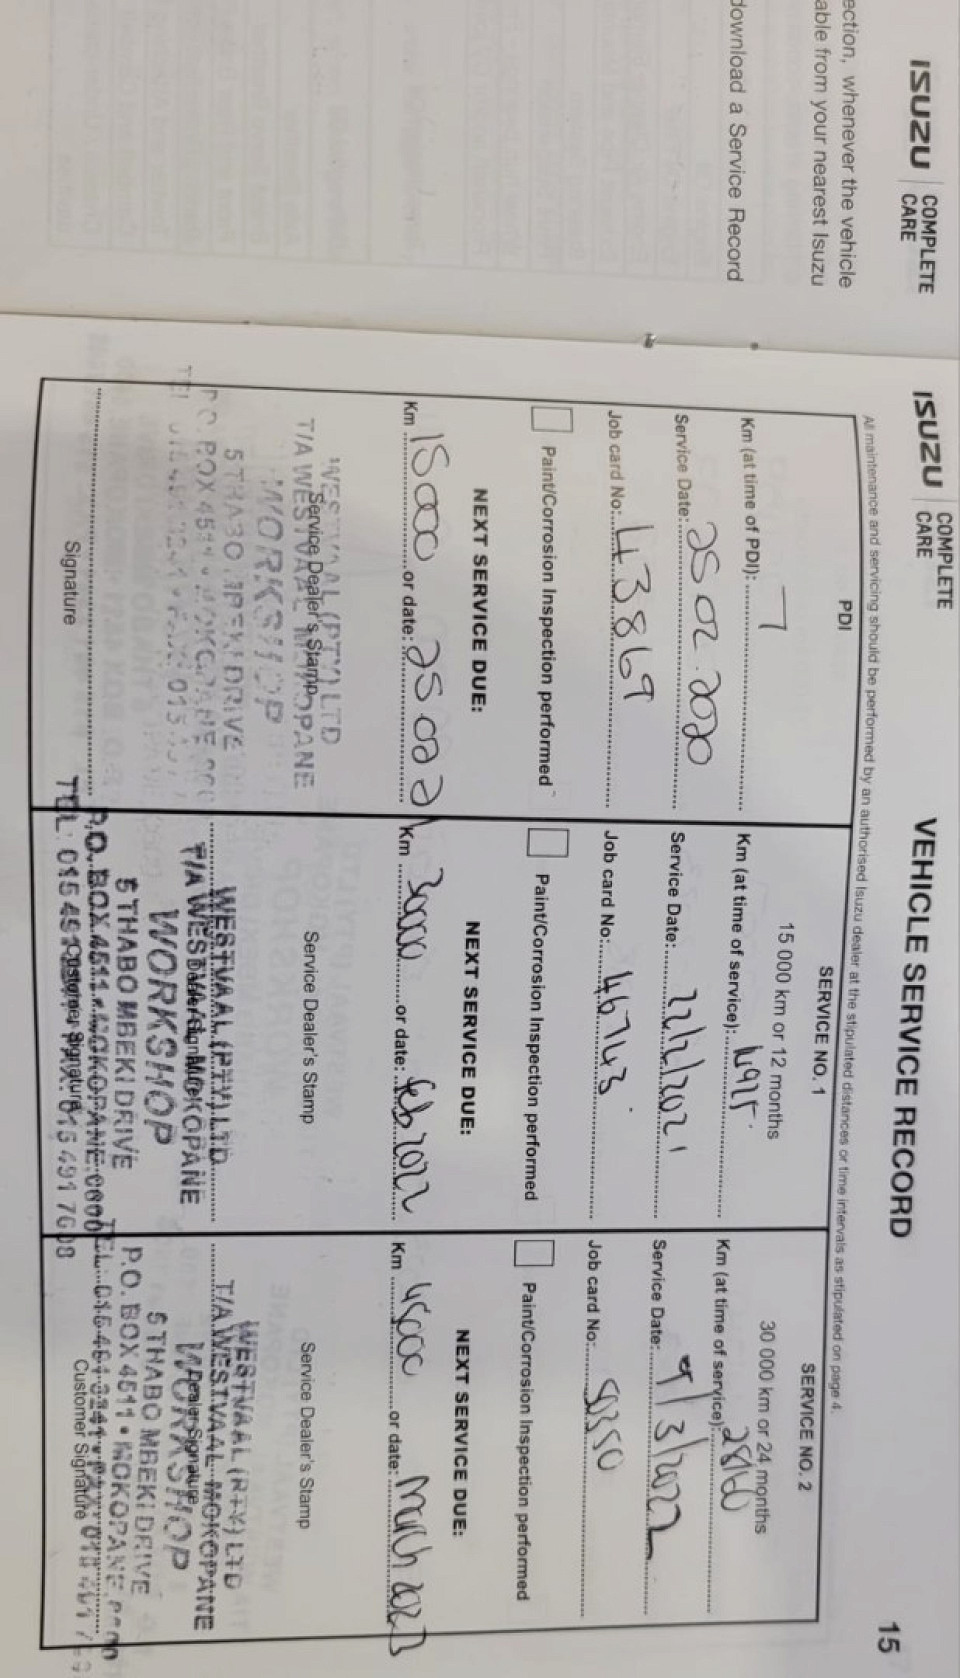 ISUZU COMPLETE CARE
ection, whenever the vehicle
able from your nearest Isuzu
download a Service Record
ISUZU COMPLETE CARE
VEHICLE SERVICE RECORD
15
All maintenance and servicing should be performed by an authorised Isuzu dealer at the stipulated distances or time intervals as stipulated on page 4.
PDI
Km (at time of PDI): 7
Service Date: 25 02 2020
Job card No: 43869
Paint/Corrosion Inspection performed
NEXT SERVICE DUE:
Km 15000 or date:
Service Dealer's Stamp
WESTVAAL (PTY) LTD
T/A WESTVAAL MOKOPANE
WORKSHOP
5 THABO MBEKI DRIVE
P.O. BOX 4511 • MOKOPANE
Signature
SERVICE NO. 1
15 000 km or 12 months
Km (at time of service):
Service Date: 22/2/2021
Job card No: 46743
Paint/Corrosion Inspection performed
NEXT SERVICE DUE:
Km 30000 or date: feb 2022
Service Dealer's Stamp
WESTVAAL (PTY) LTD
T/A WESTVAAL MOKOPANE
Dealer Signature
WORKSHOP
5 THABO MBEKI DRIVE
P.O. BOX 4511 • MOKOPANE 0600
Customer Signature
TEL: 015 491 FAX: 015 491 7608
SERVICE NO. 2
30 000 km or 24 months
Km (at time of service):
Service Date: 9/3/2022
Job card No: 50350
Paint/Corrosion Inspection performed
NEXT SERVICE DUE:
Km 45000 or date: March 2023
Service Dealer's Stamp
WESTVAAL (PTY) LTD
T/A WESTVAAL MOKOPANE
Dealer Signature
WORKSHOP
5 THABO MBEKI DRIVE
P.O. BOX 4511 • MOKOPANE
Customer Signature